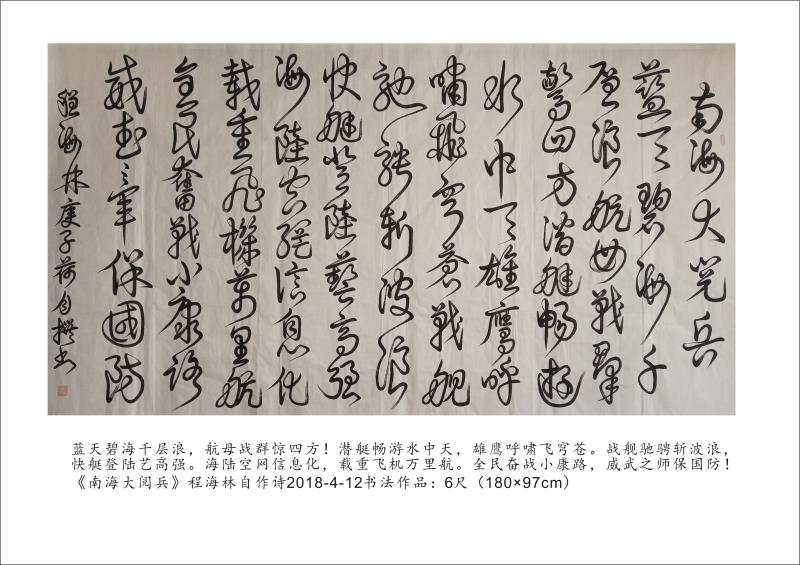 南海大閱兵
藍天碧海千
层浪航母戰群
驚四方潜艇畅游
水中天雄鹰呼
嘯飛穹蒼戰舰
驰骋斩波浪
快艇登陸藝高强
海陸空網信息化
載重飛機萬里航
全民奮戰小康路
威武之軍保國防
程海林庚子荷月撰书
蓝天碧海千层浪，航母战群惊四方！潜艇畅游水中天，雄鹰呼啸飞穹苍。战舰驰骋斩波浪，
快艇登陆艺高强。海陆空网信息化，载重飞机万里航。全民奋战小康路，威武之师保国防！
《南海大阅兵》程海林自作诗2018-4-12书法作品：6尺（180×97cm）